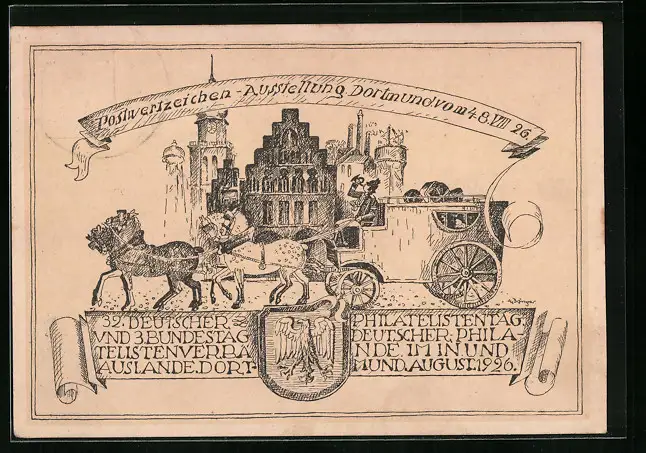 Postwertzeichen-Ausstellung Dortmund vom 4-8.VIII 26.
32. DEUTSCHER PHILATELISTENTAG
VND 3. BUNDESTAG DEUTSCHER PHILA
TELISTENVERBA NDE IM IN UND
AUSLANDE. DORT- MUND. AUGUST. 1926.